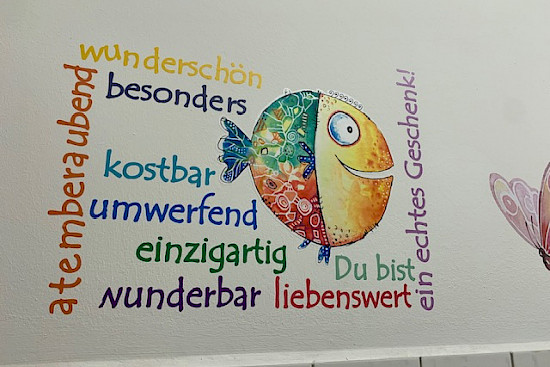 wunderschön
besonders
atemberaubend
kostbar
umwerfend
einzigartig
wunderbar
Du bist
liebenswert
ein echtes Geschenk!